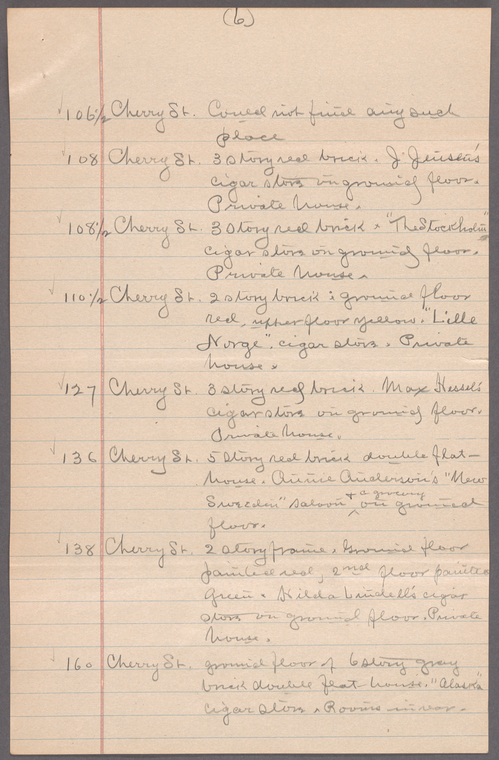 (6)
✓106½ Cherry St. Could not find any such
place
✓108 Cherry St. 3 story red brick. J. Jensen's
cigar store on ground floor.
Private house.
✓108½ Cherry St. 3 story red brick. "The Stockholm"
cigar store on ground floor.
Private house.
✓110½ Cherry St. 2 story brick; ground floor
red, upper floor yellow. "Lille
Norge". cigar store. Private
house.
✓127 Cherry St. 3 story red brick. Max Hessel's
cigar store on ground floor.
Private house.
✓136 Cherry St. 5 story red brick double flat-
house. Annie Anderson's "New
Sweden" saloon + a grocery on ground
floor.
✓138 Cherry St. 2 story frame. Ground floor
painted red, 2nd floor painted
green. Hilda Lindell's cigar
store on ground floor. Private
house.
✓160 Cherry St. ground floor of 6 story gray
brick double flat-house. "Alaska"
cigar store. Rooms in rear.